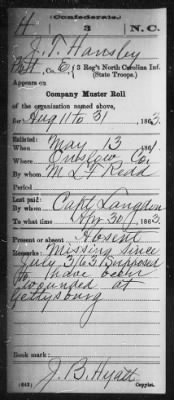 (Confederate.)
H 3 N.C.
J. T. Hansley
Pvt, Co. E, 3 Reg't North Carolina Inf.
(State Troops.)
Appears on
Company Muster Roll
of the organization named above,
for Aug 11 to 31, 1863.
Enlisted:
When May 13, 1861.
Where Onslow Co.
By whom M L F Redd
Period
Last paid:
By whom Capt Langdon
To what time Apr 30, 1863.
Present or absent Absent
Remarks: Missing since
July 3/63 Supposed
to have been
wounded at
Gettysburg
Book mark:
(642) J. B. Hyatt
Copyist.